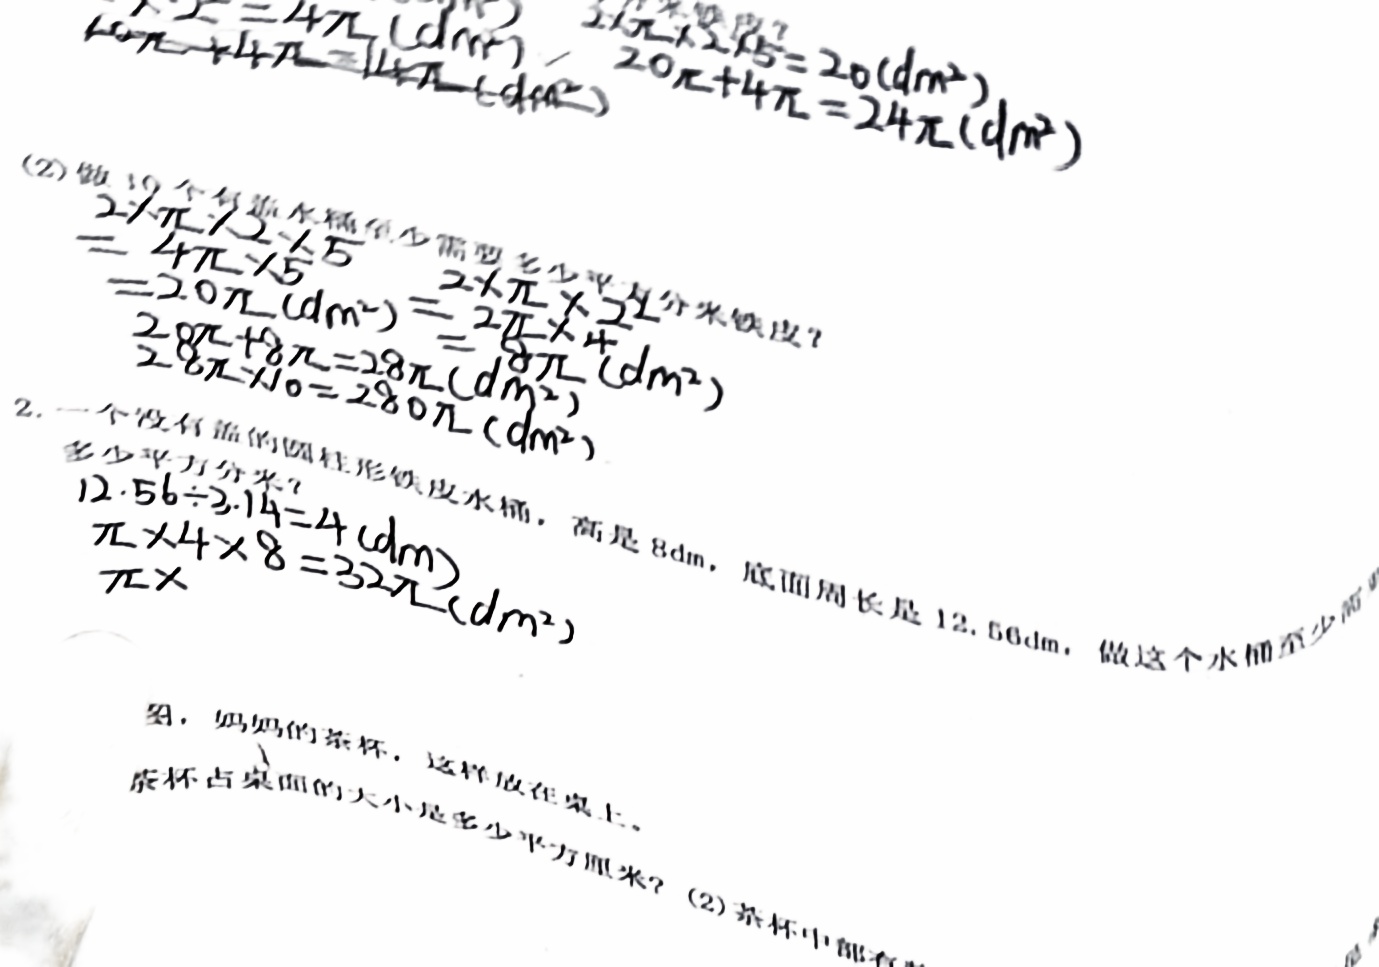 =4π(dm²)
2×π×2×5=20(dm²)
10π+4π=14π(dm²)
20π+4π=24π(dm²)
(2)做10个有盖水桶至少需要多少平方分米铁皮?
2×π×2×5
=4π×5
=20π(dm²)
2×π×2²
=2π×4
=8π(dm²)
20π+8π=28π(dm²)
28π×10=280π(dm²)
2.一个没有盖的圆柱形铁皮水桶,高是8dm,底面周长是12.56dm,做这个水桶至少需要
多少平方分米?
12.56÷3.14=4(dm)
π×4×8=32π(dm²)
π×
图,妈妈的茶杯,这样放在桌上。
茶杯占桌面的大小是多少平方厘米?(2)茶杯中部有